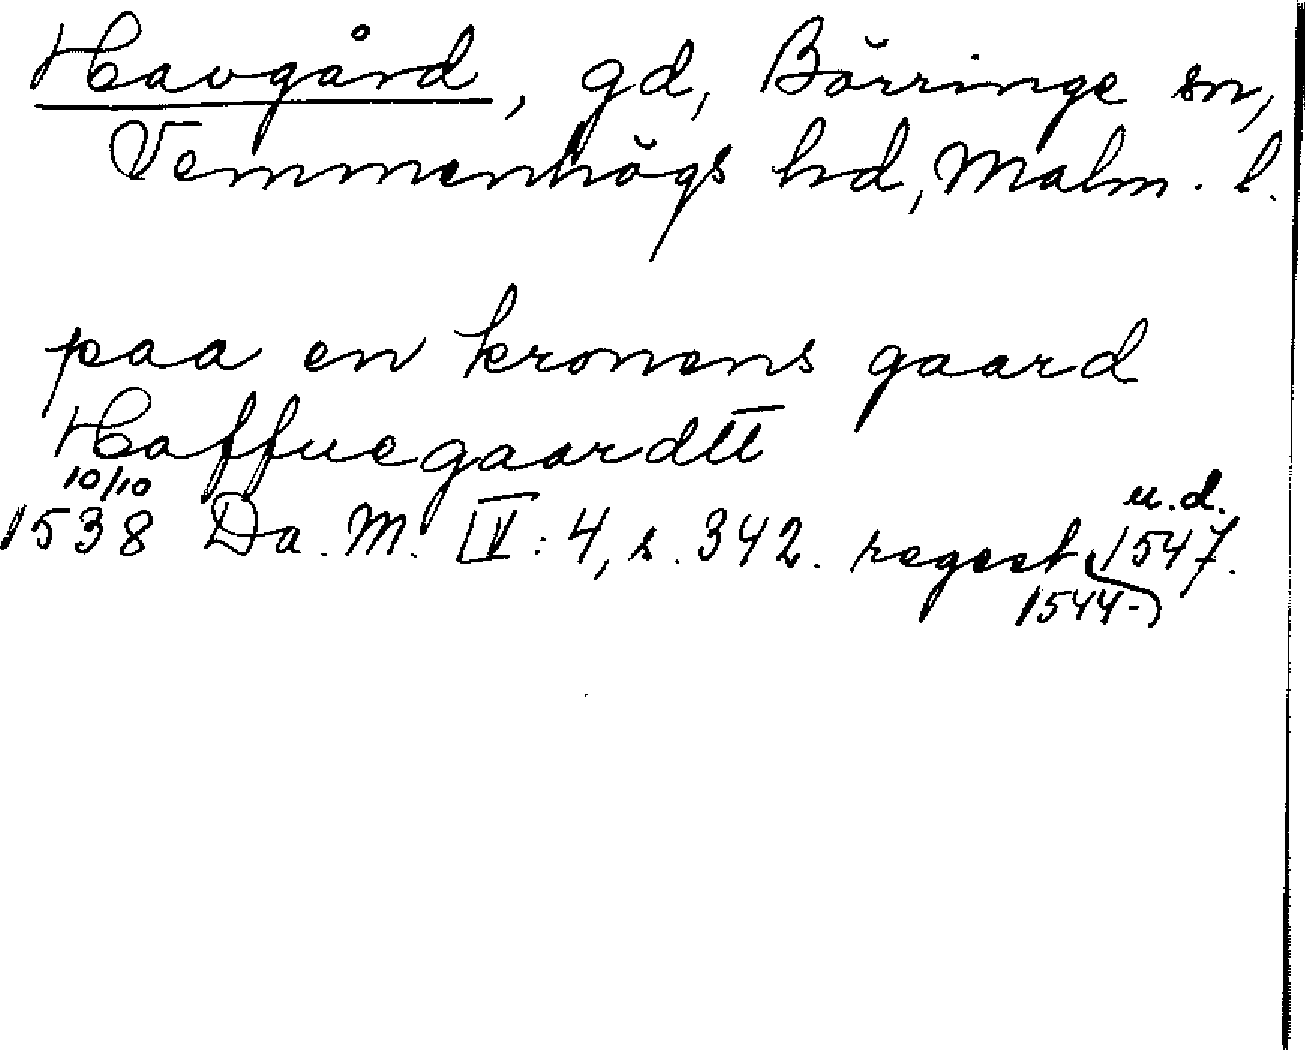 Havgård, gd, Börringe sn,
Vemmenhögs hd, Malm. l.
paa en kronens gaard
Haffuegaardtt
10/10
1538 Da. M. IV: 4, s. 342. regest 1547.
u.d.
1544-